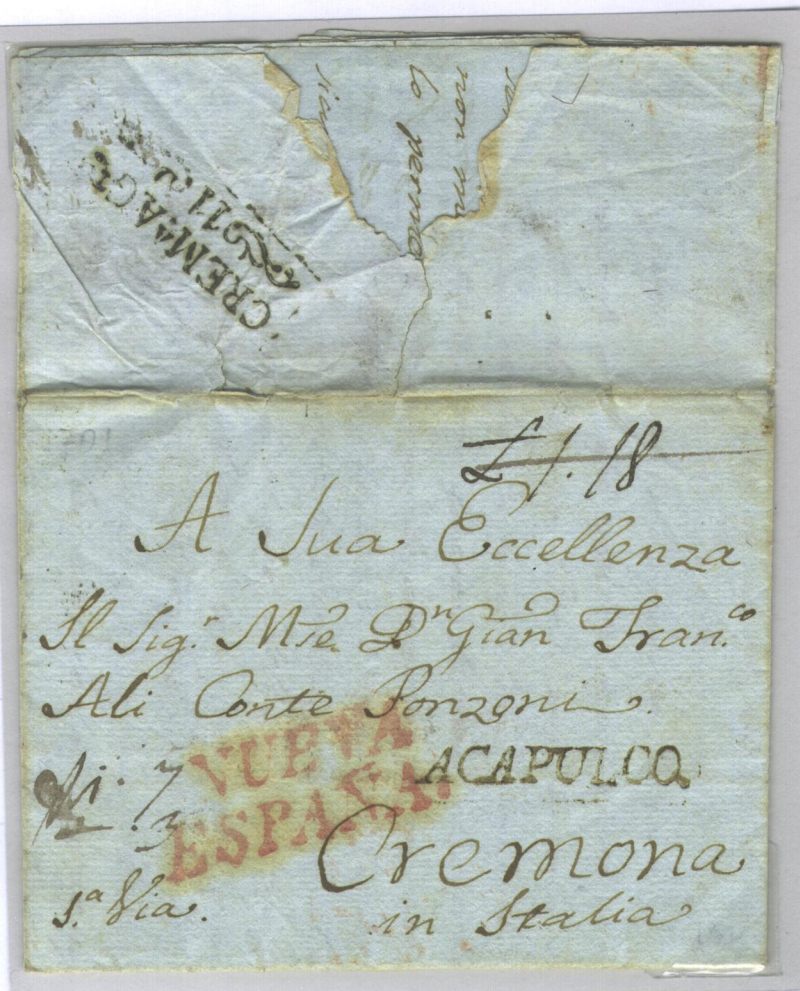 non mi
lo perme
CREM.A AG.
11
£ 1. 18
A Sua Eccellenza
Il Sig.r Mse. Dn Gian Fran.co
Ali Conte Ponzoni
NUEVA
ESPAÑA.
ACAPULCO.
7
3
Cremona
1.a Via.
in Italia